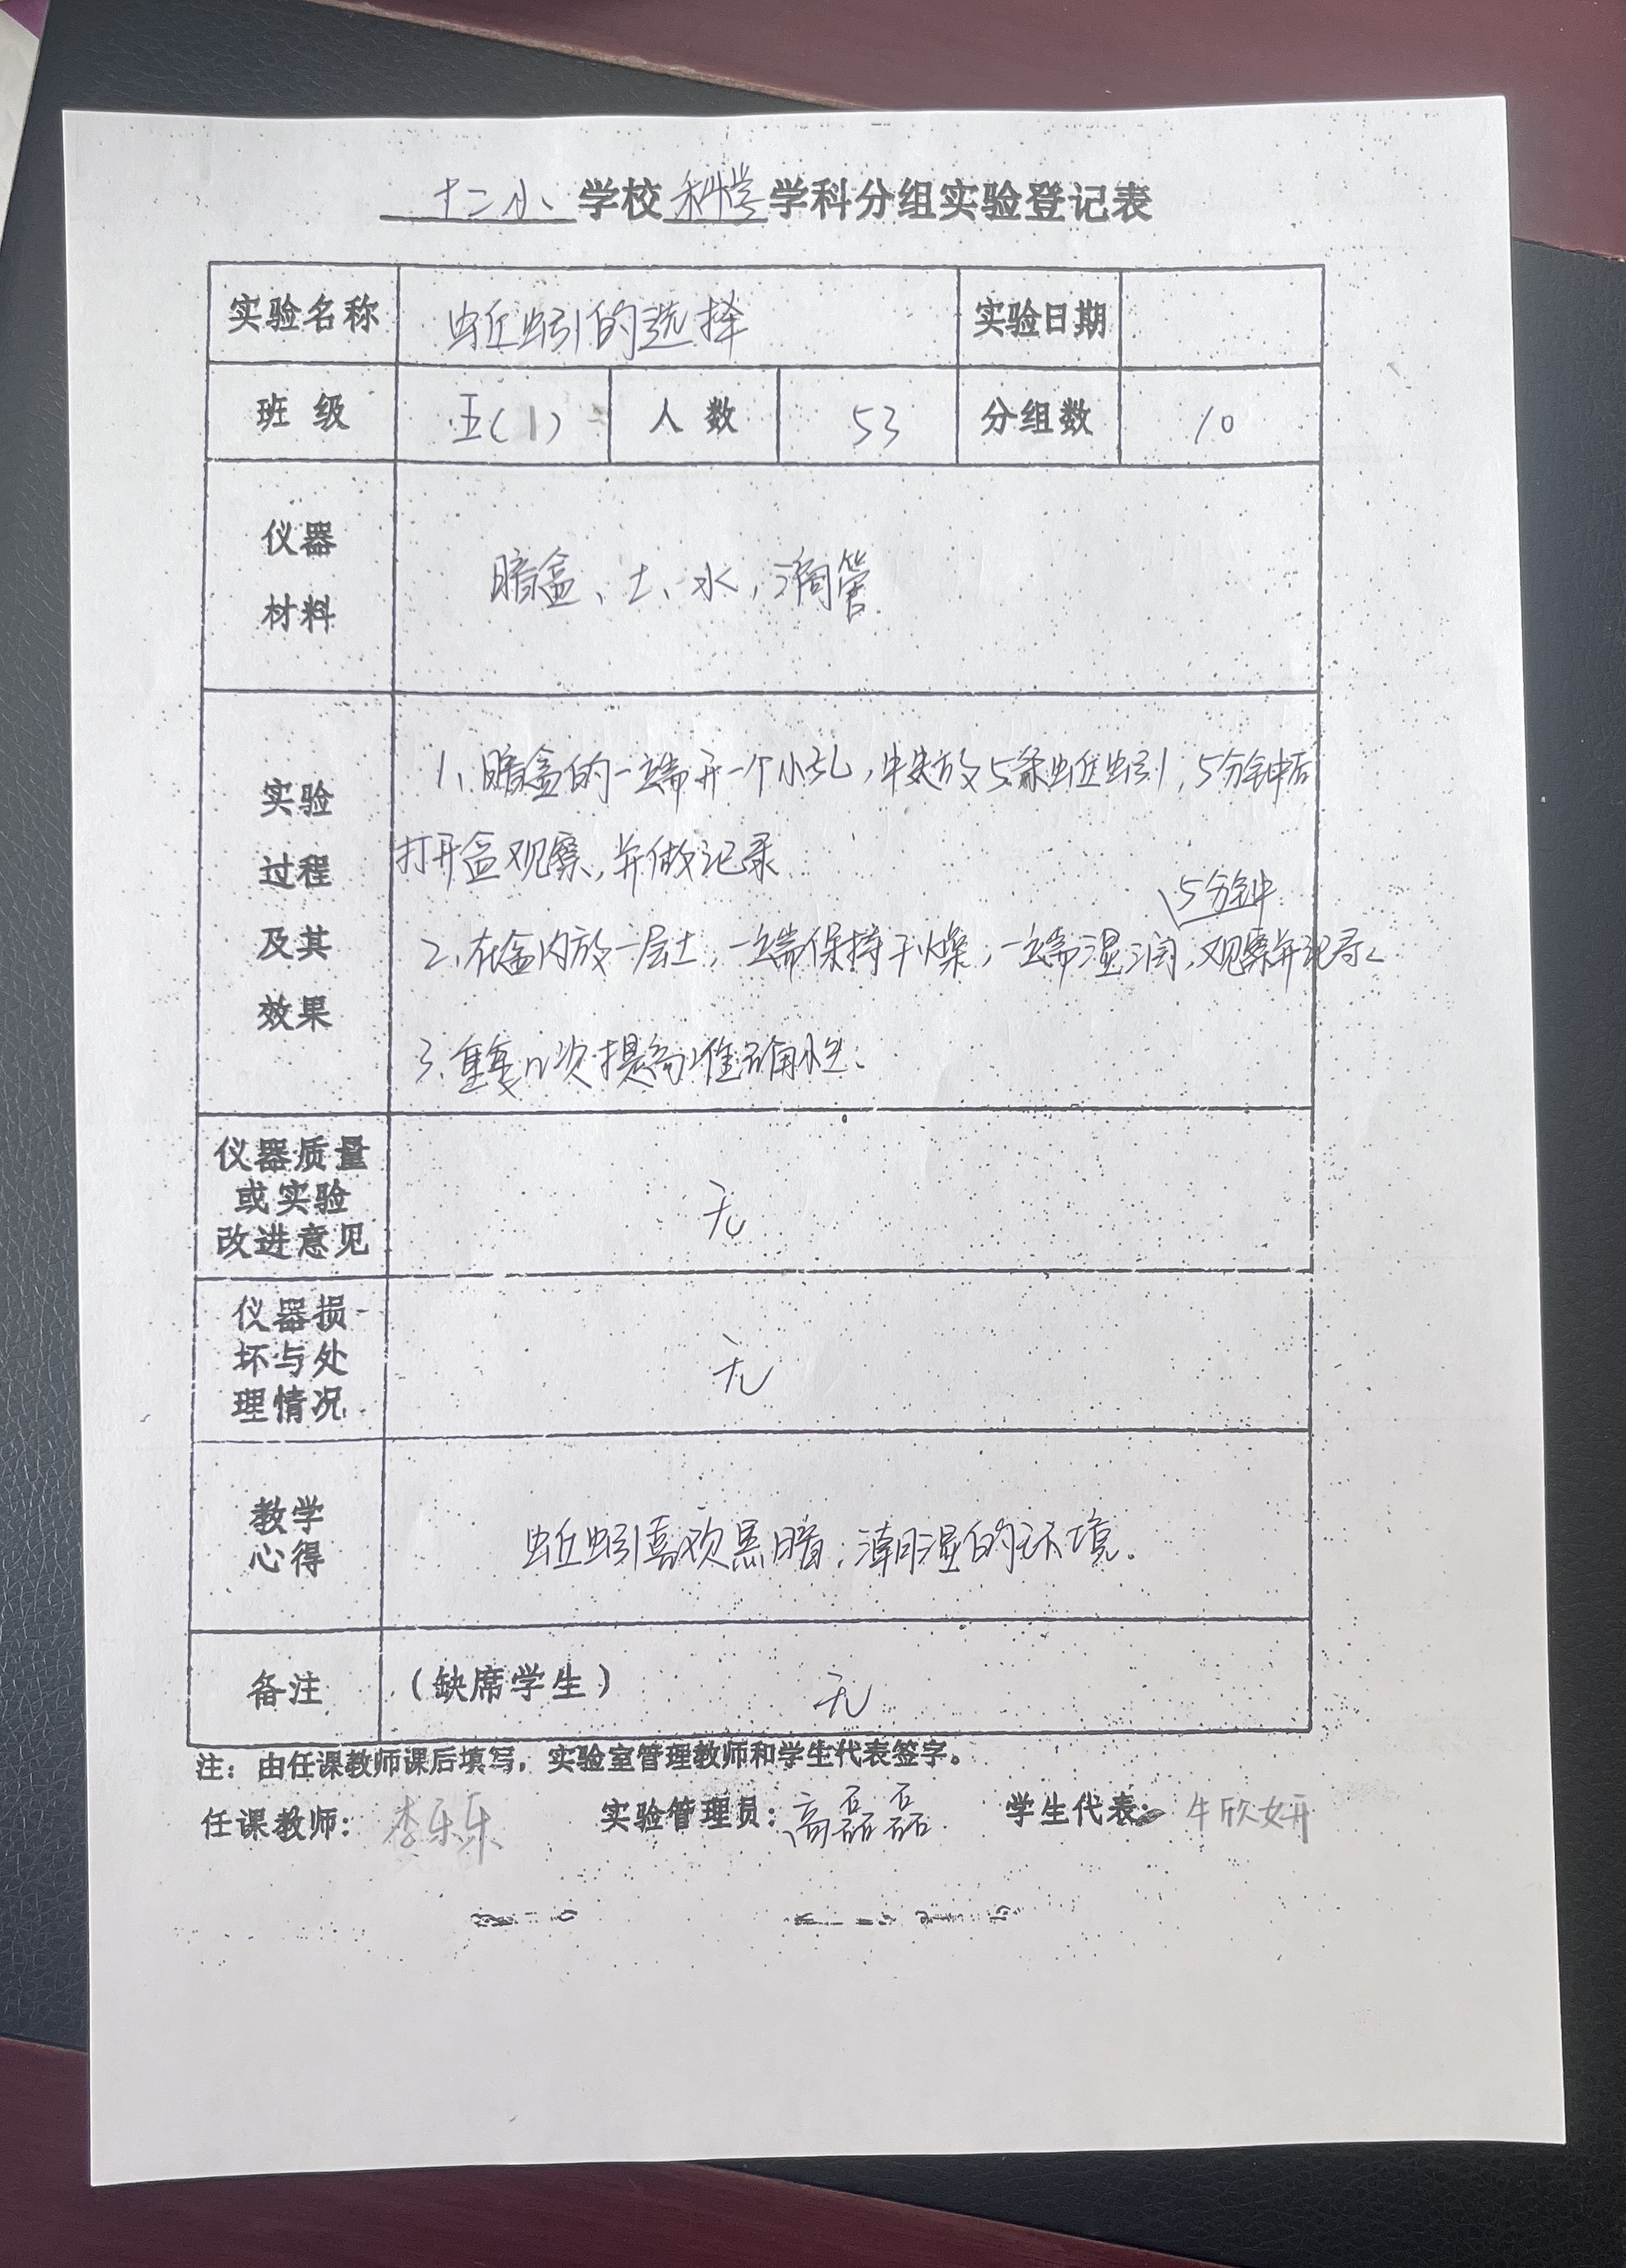 十二小 学校 科学 学科分组实验登记表
实验名称 蚯蚓的选择 实验日期
班 级 五(1) 人 数 53 分组数 10
仪器
材料
暗盒、土、水,滴管.
实验
过程
及其
效果
1、暗盒的一端开一个小孔,中央放5条蚯蚓,5分钟后
打开盒观察,并做记录
5分钟
2、在盒内放一层土,一端保持干燥,一端湿润,观察并记录
3、重复n次提高准确性.
仪器质量
或实验
改进意见
无
仪器损
坏与处
理情况
无
教学
心得
蚯蚓喜欢黑暗,潮湿的环境.
备注 (缺席学生) 无
注:由任课教师课后填写,实验室管理教师和学生代表签字。
任课教师: 李乐乐 实验管理员: 高磊磊 学生代表: 牛欣妍